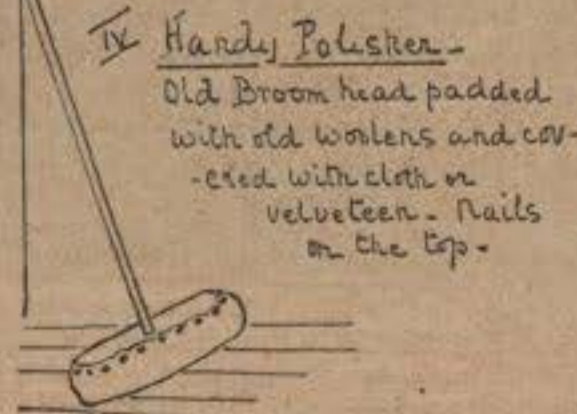 IV Handy Polisher-
Old Broom head padded
with old woolens and cov-
-ered with cloth or
velveteen- Nails
on the top-